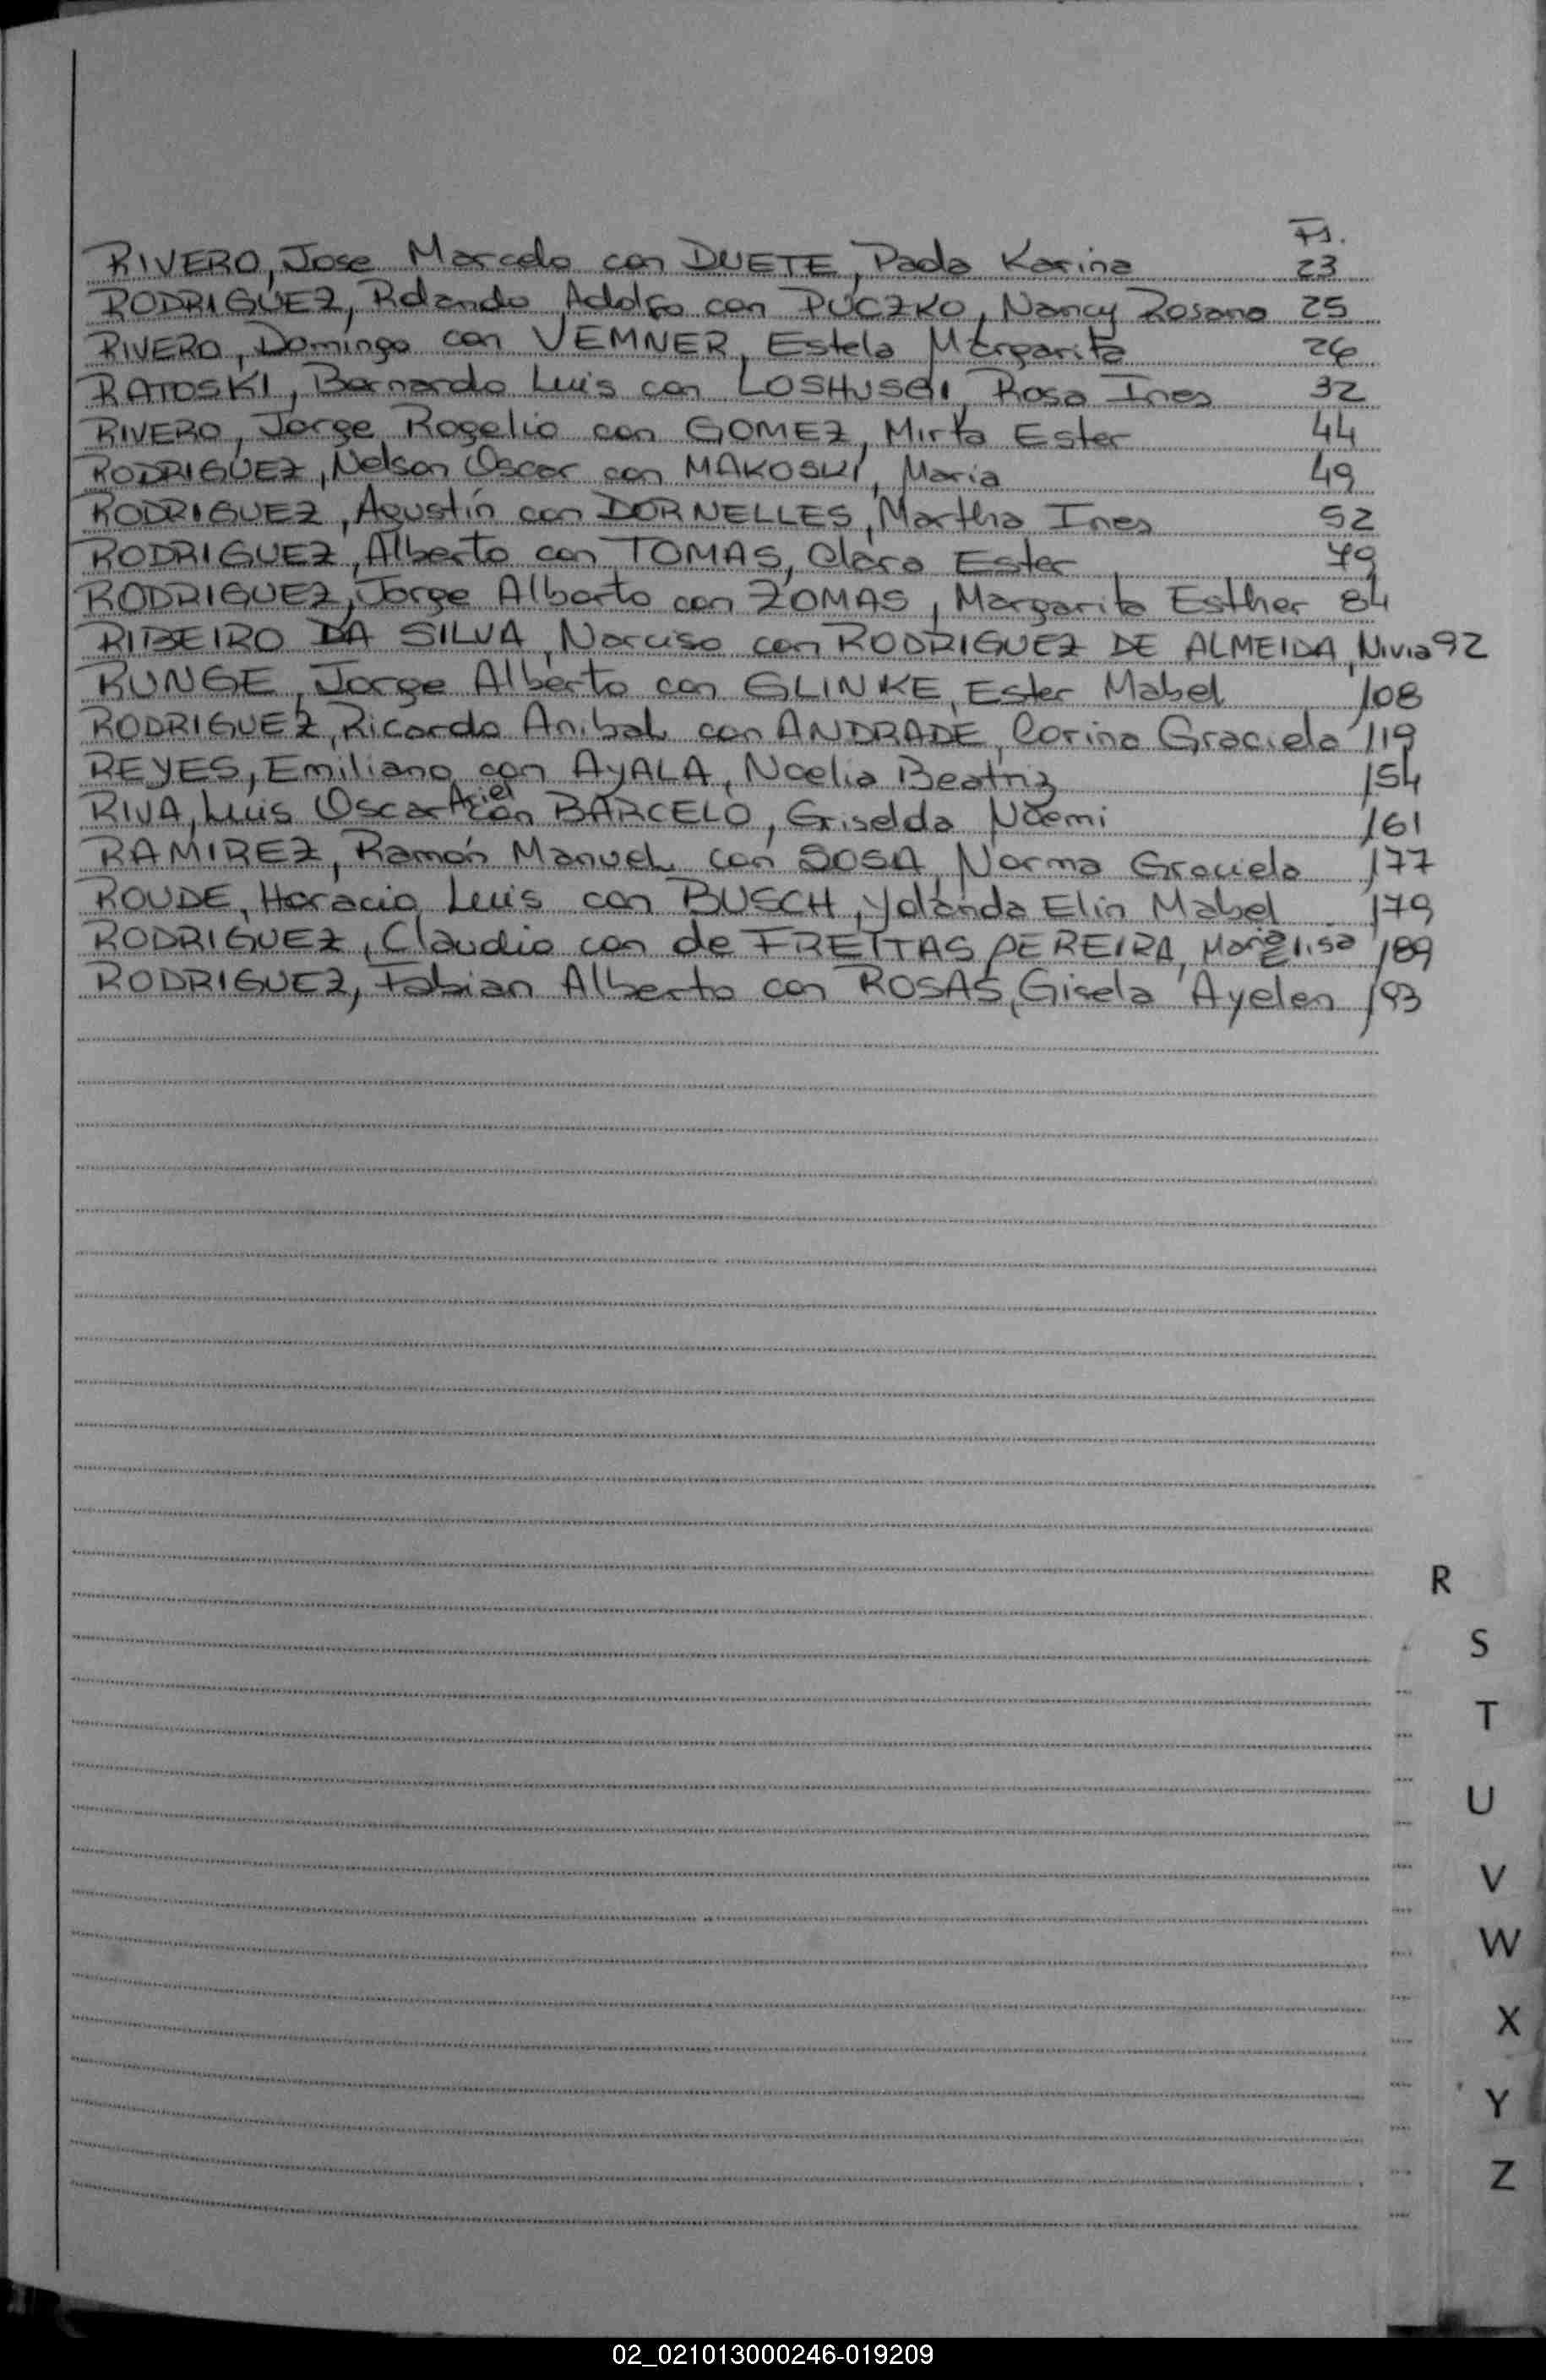 Fs.
RIVERO, Jose Marcelo con DUETE, Paola Karina 23
RODRIGUEZ, Rolando Adolfo con PUCZKO, Nancy Rosana 25
RIVERO, Domingo con VEMNER, Estela Margarita 26
RATOSKI, Bernardo Luis con Rosa Ines 32
RIVERO, Jorge Rogelio con GOMEZ, Mirta Ester 44
RODRIGUEZ, Nelson Oscar con MAKOSKI, Maria 49
RODRIGUEZ, Agustín con DORNELLES, Martha Ines 52
RODRIGUEZ, Alberto con TOMAS, Clara Ester 79
RODRIGUEZ, Jorge Alberto con ZOMAS, Margarita Esther 84
RIBEIRO DA SILVA, Narciso con RODRIGUEZ DE ALMEIDA, Nivia 92
RUNGE, Jorge Alberto con GLINKE, Ester Mabel 108
RODRIGUEZ, Ricardo Anibal con ANDRADE, Corina Graciela 119
REYES, Emiliano con AYALA, Noelia Beatriz 154
RIVA, Luis Oscar Ariel con BARCELO, Griselda Noemi 161
RAMIREZ, Ramón Manuel con SOSA, Norma Graciela 177
ROUDE, Horacio Luis con BUSCH, Yolanda Elin Mabel 179
RODRIGUEZ, Claudio con de FREITAS PEREIRA, 189
RODRIGUEZ, Fabian Alberto con ROSAS, Gisela Ayelen 193
R
S
T
U
V
W
X
Y
Z
02_021013000246-019209